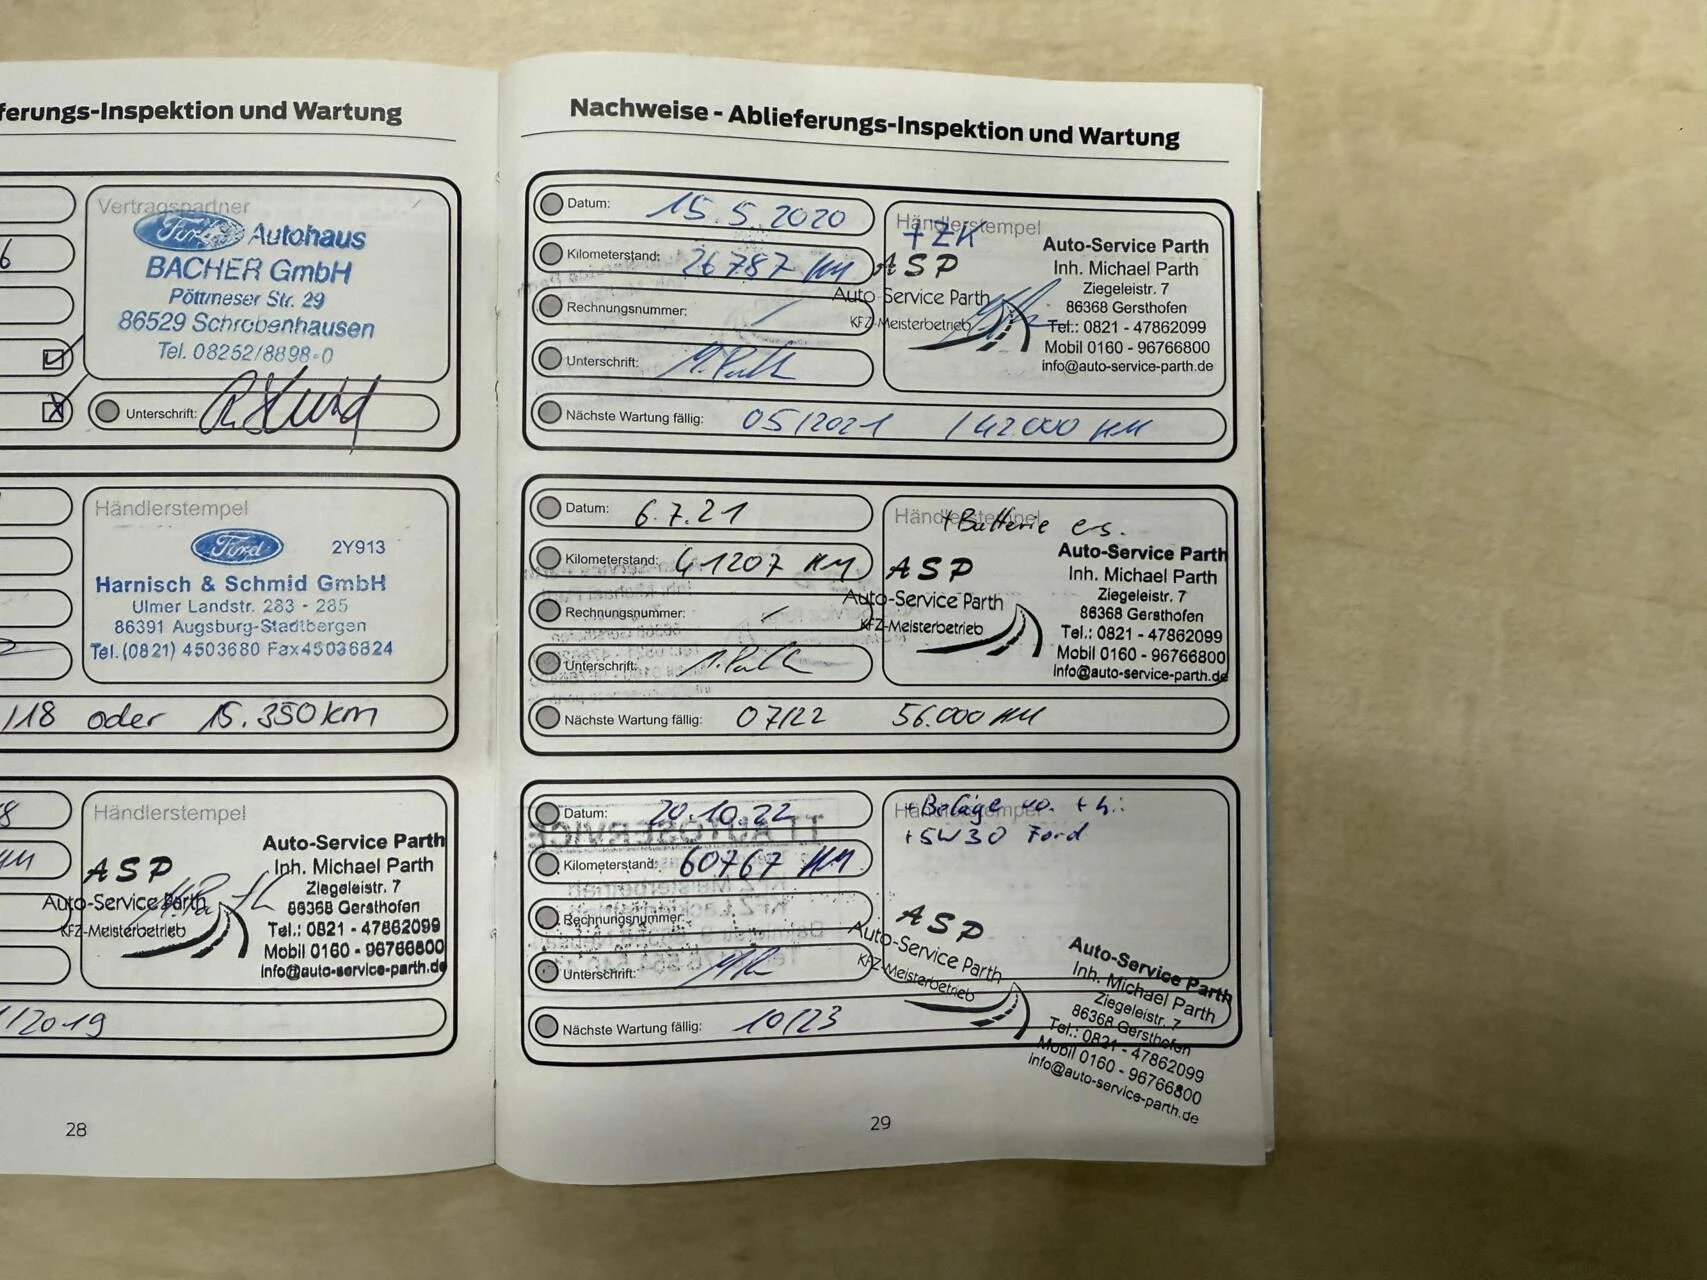 ferungs-Inspektion und Wartung
6
Vertragspartner
Ford Autohaus
BACHER GmbH
Pöttmeser Str. 29
86529 Schrobenhausen
Tel. 08252/8898-0
Unterschrift:
Händlerstempel
Ford 2Y913
Harnisch & Schmid GmbH
Ulmer Landstr. 283 - 285
86391 Augsburg-Stadtbergen
Tel. (0821) 4503680 Fax 45036824
/18 oder 15.350 km
8
Händlerstempel
ASP
Auto-Service Parth
KFZ-Meisterbetrieb
Auto-Service Parth
Inh. Michael Parth
Ziegeleistr. 7
86368 Gersthofen
Tel.: 0821 - 47862099
Mobil 0160 - 96766800
info@auto-service-parth.de
/2019
28
Nachweise - Ablieferungs-Inspektion und Wartung
Datum: 15.5.2020
Kilometerstand: 26787 KM
Rechnungsnummer: /
Unterschrift: M. Parth
Händlerstempel
+ZK
ASP
Auto-Service Parth
KFZ-Meisterbetrieb
Auto-Service Parth
Inh. Michael Parth
Ziegeleistr. 7
86368 Gersthofen
Tel.: 0821 - 47862099
Mobil 0160 - 96766800
info@auto-service-parth.de
Nächste Wartung fällig: 05/2021 / 42.000 KM
Datum: 6.7.21
Kilometerstand: 41207 KM
Rechnungsnummer: /
Unterschrift: M. Parth
Händlerstempel
+Batterie ers.
ASP
Auto-Service Parth
KFZ-Meisterbetrieb
Auto-Service Parth
Inh. Michael Parth
Ziegeleistr. 7
86368 Gersthofen
Tel.: 0821 - 47862099
Mobil 0160 - 96766800
info@auto-service-parth.de
Nächste Wartung fällig: 07/22 56.000 KM
Datum: 20.10.22
Kilometerstand: 60767 KM
Rechnungsnummer:
Unterschrift:
Händlerstempel
+Beläge vo. + hi.
+5W30 Ford
ASP
Auto-Service Parth
KFZ-Meisterbetrieb
Auto-Service Parth
Inh. Michael Parth
Ziegeleistr. 7
86368 Gersthofen
Tel.: 0821 - 47862099
Mobil 0160 - 96766800
info@auto-service-parth.de
Nächste Wartung fällig: 10/23
29